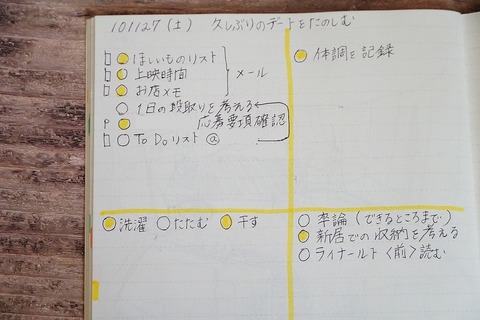 101127(土) 久しぶりのデートをたのしむ
ほしいものリスト
上映時間
お店メモ
メール
1日の段取りを考える
P 応募要項確認
To Doリスト @
体調を記録
洗濯 たたむ 干す
卒論(できるところまで)
新居での収納を考える
ライナールト〈前〉読む